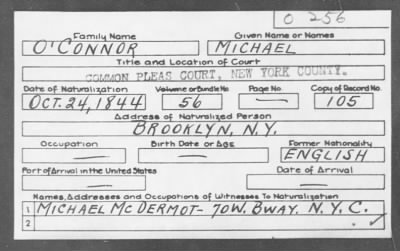 O 256
Family Name Given Name or Names
O'CONNOR MICHAEL
Title and Location of Court
COMMON PLEAS COURT, NEW YORK COUNTY.
Date of Naturalization Volume or Bundle No Page No. Copy of Record No.
OCT. 24, 1844 56 — 105
Address of Naturalized Person
BROOKLYN, N.Y.
Occupation Birth Date or Age Former Nationality
— — ENGLISH
Port of Arrival in the United States Date of Arrival
— —
Names, Addresses and Occupations of Witnesses To Naturalization
1 MICHAEL MC DERMOT - 70 W. BWAY. N.Y.C.
2 ✓